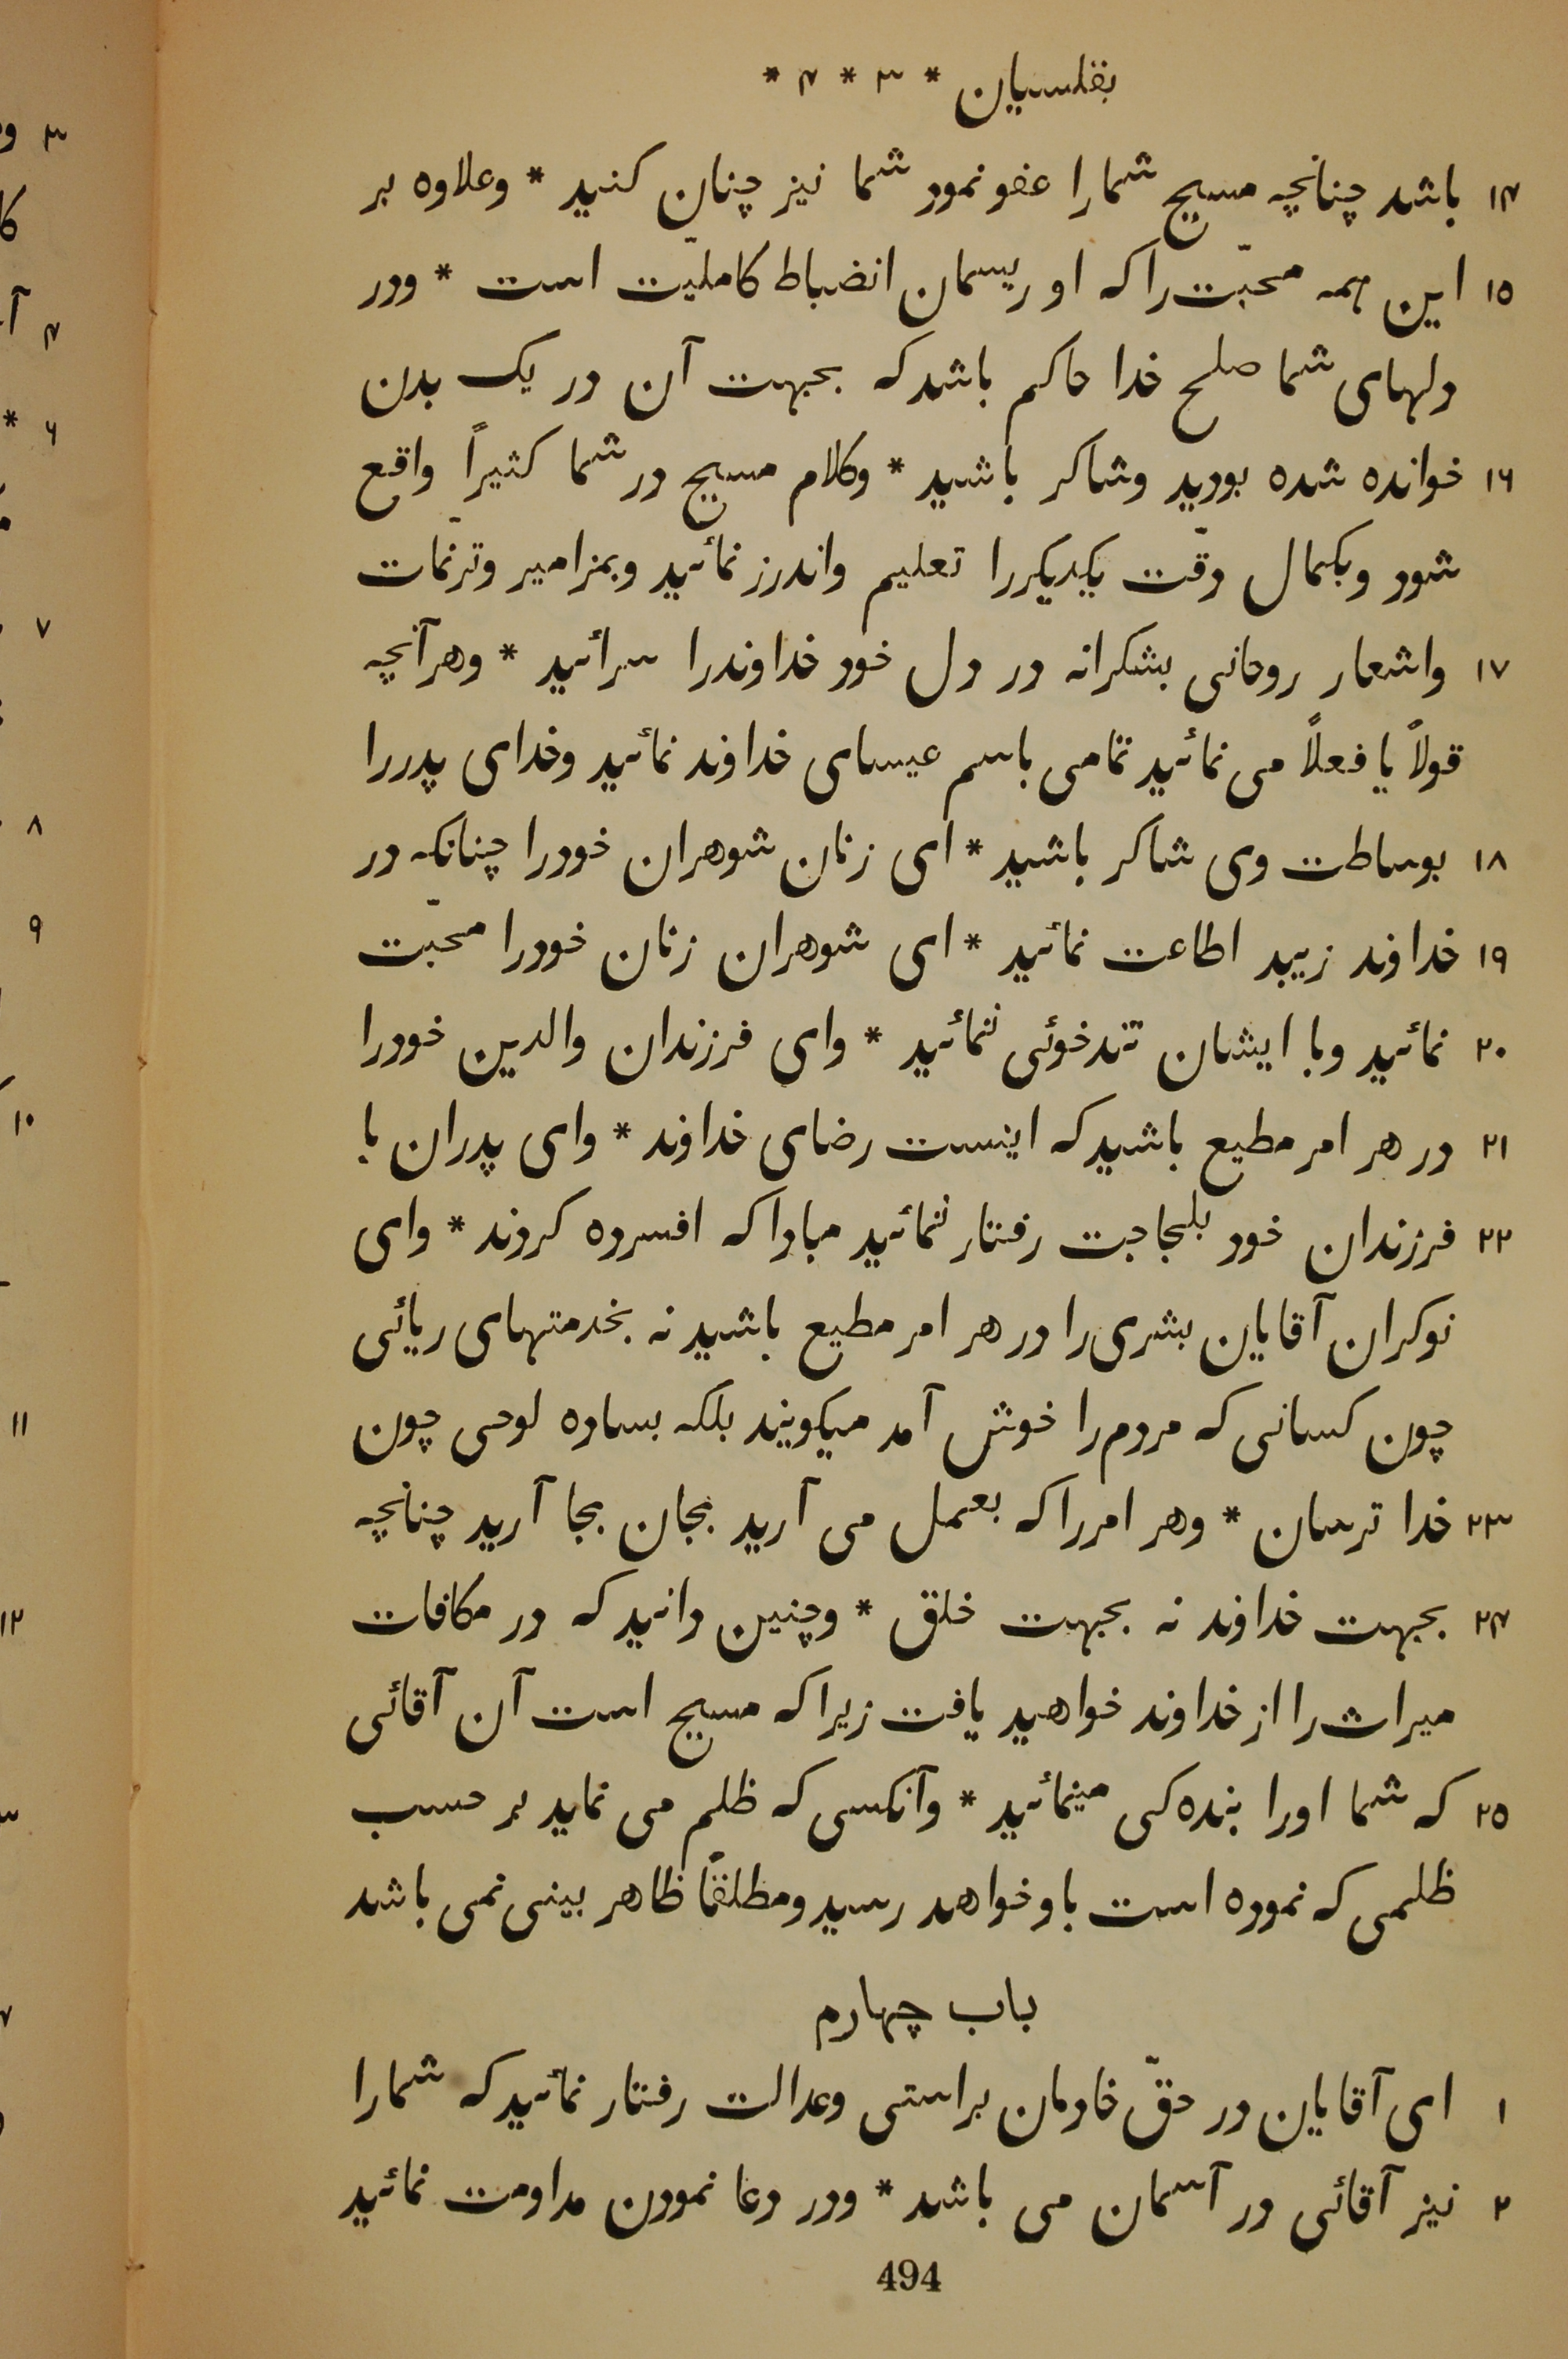 بقلسیان * ۳ * ۴ *
۱۴ باشد چنانچه مسیح شمارا عفو نمود شما نیز چنان کنید * وعلاوه بر
۱۵ این همه محبّت راکه او ریسمان انضباط کاملیّت است * ودر
دلهای شما صلح خدا حاکم باشد که بجهت آن در یک بدن
۱۶ خوانده شده بودید وشاکر باشید * وکلام مسیح در شما کثیراً واقع
شود وبکمال دقّت یکدیکررا تعلیم واندرز نمائید وبمزامیر وترنّمات
۱۷ واشعار روحانی بشکرانه در دل خود خداوندرا سرائید * وهرآنچه
قولاً یا فعلاً می نمائید تمامی باسم عیسای خداوند نمائید وخدای پدررا
۱۸ بوساطت وی شاکر باشید * ای زنان شوهران خودرا چنانکه در
۱۹ خداوند زیبد اطاعت نمائید * ای شوهران زنان خودرا محبّت
۲۰ نمائید وبا ایشان تندخوئی ننمائید * وای فرزندان والدین خودرا
۲۱ در هر امر مطیع باشید که اینست رضای خداوند * وای پدران با
۲۲ فرزندان خود بلجاجت رفتار ننمائید مبادا که افسرده کردند * وای
نوکران آقایان بشری را در هر امر مطیع باشید نه بخدمتهای ریائی
چون کسانی که مردم را خوش آمد میکویند بلکه بساده لوحی چون
۲۳ خدا ترسان * وهر امرراکه بعمل می آرید بجان بجا آرید چنانچه
۲۴ بجهت خداوند نه بجهت خلق * وچنین دانید که در مکافات
میراث را از خداوند خواهید یافت زیرا که مسیح است آن آقائی
۲۵ که شما اورا بنده کی مینمائید * وآنکسی که ظلم می نماید بر حسب
ظلمی که نموده است باو خواهد رسید ومطلقًا ظاهر بینی نمی باشد
باب چهارم
۱ ای آقایان در حقّ خادمان براستی وعدالت رفتار نمائید که شمارا
۲ نیز آقائی در آسمان می باشد * ودر دعا نمودن مداومت نمائید
494